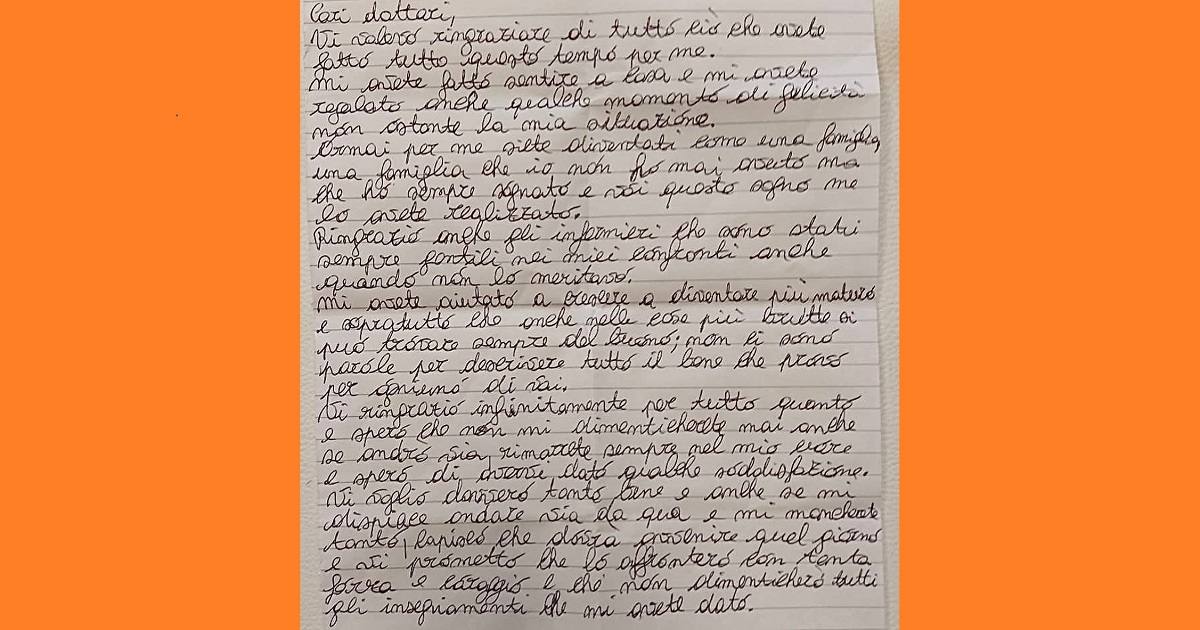 Cari dottori,
Vi volevo ringraziare di tutto ciò che avete
fatto tutto questo tempo per me.
Mi avete fatto sentire a casa e mi avete
regalato anche qualche momento di felicità
non ostante la mia situazione.
Ormai per me siete diventati come una famiglia,
una famiglia che io non ho mai avuto ma
che ho sempre sognato e voi questo sogno me
lo avete realizzato.
Ringrazio anche gli infermieri che sono stati
sempre gentili nei miei confronti anche
quando non lo meritavo.
Mi avete aiutato a crescere a diventare più maturo
e sopratutto che anche nelle cose più brutte si
può trovare sempre del buono; non ci sono
parole per descrivere tutto il bene che provo
per ogniuno di voi.
Vi ringrazio infinitamente per tutto quanto
e spero che non mi dimenticherete mai anche
se andrò via, rimarrete sempre nel mio cuore
e spero di avervi dato qualche soddisfazione.
Vi voglio davvero tanto bene e anche se mi
dispiace andare via da qua e mi mancherete
tanto, capisco che dovrà avvenire quel giorno
e vi prometto che lo affronterò con tanta
forza e coraggio e che non dimenticherò tutti
gli insegnamenti che mi avete dato.